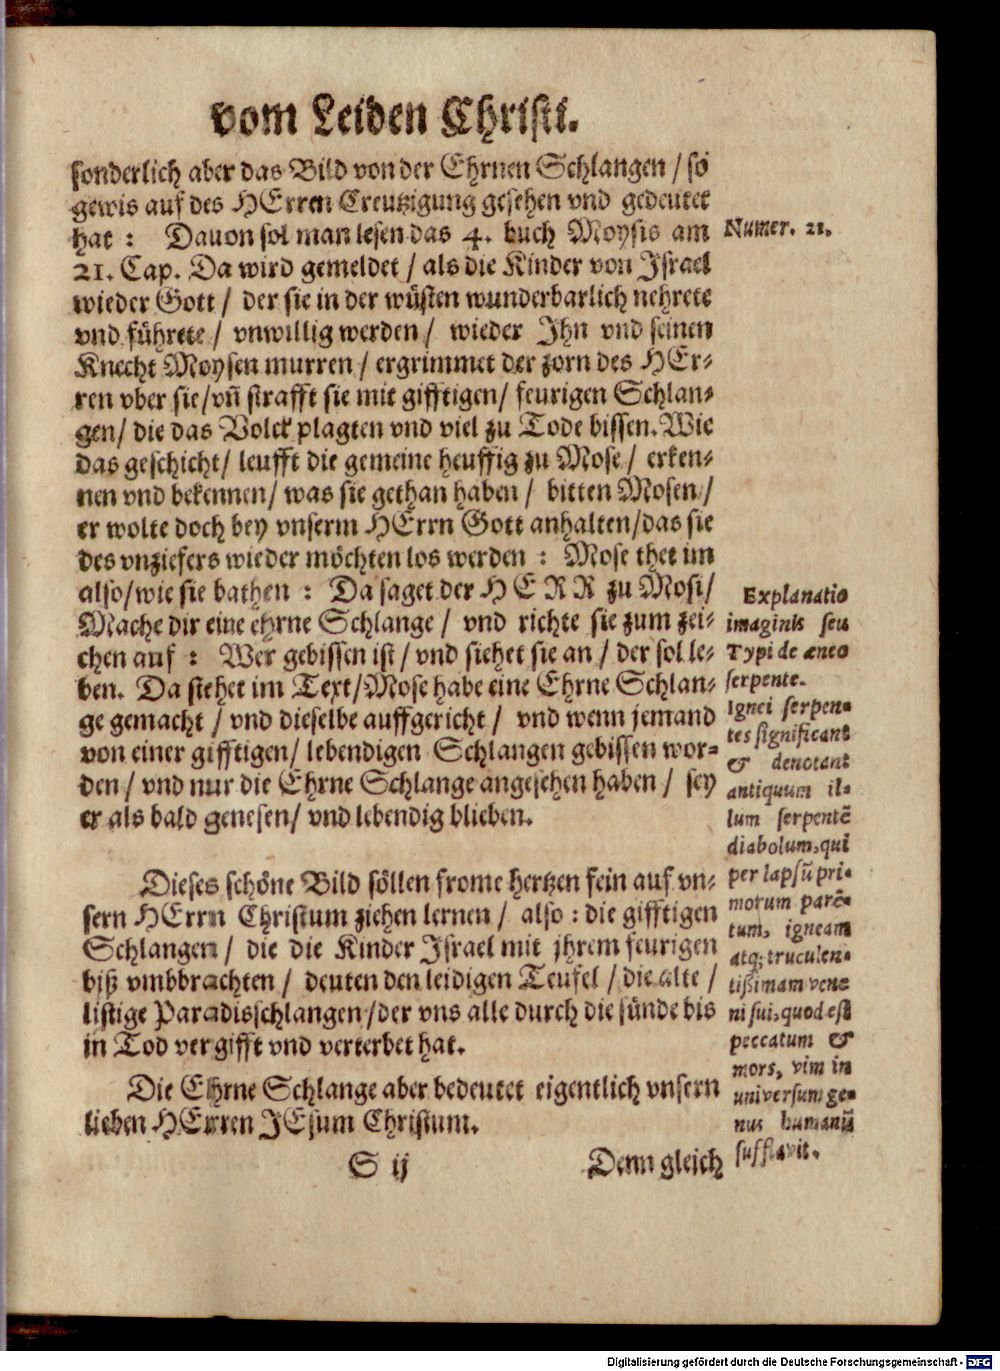 vom Leiden Christi.
sonderlich aber das Bild von der Ehrnen Schlangen / so
gewis auf des HErren Creutzigung gesehen vnd gedeutet
hat : Dauon sol man lesen das 4. buch Moysis am
21. Cap. Da wird gemeldet / als die Kinder von Israel
wieder Gott / der sie in der wüsten wunderbarlich nehrete
vnd führete / vnwillig werden / wieder Ihn vnd seinen
Knecht Moysen murren / ergrimmet der zorn des HEr-
ren vber sie/vñ strafft sie mit gifftigen/ feurigen Schlan-
gen/ die das Volck plagten vnd viel zu Tode bissen. Wie
das geschicht/ leufft die gemeine heuffig zu Mose / erken-
nen vnd bekennen/ was sie gethan haben / bitten Mosen /
er wolte doch bey vnserm HErrn Gott anhalten/das sie
des vnziefers wieder möchten los werden : Mose thet im
also/wie sie bathen : Da saget der HERR zu Mosi/
Mache dir eine ehrne Schlange / vnd richte sie zum zei-
chen auf : Wer gebissen ist / vnd siehet sie an / der sol le-
ben. Da stehet im Text/Mose habe eine Ehrne Schlan-
ge gemacht / vnd dieselbe auffgericht / vnd wenn jemand
von einer gifftigen/ lebendigen Schlangen gebissen wor-
den / vnd nur die Ehrne Schlange angesehen haben / sey
er als bald genesen/ vnd lebendig blieben.
Dieses schöne Bild söllen frome hertzen fein auf vn-
sern HErrn Christum ziehen lernen / also : die gifftigen
Schlangen / die die Kinder Israel mit jhrem feurigen
biß vmbbrachten / deuten den leidigen Teufel / die alte /
listige Paradisschlangen/der vns alle durch die sünde bis
in Tod vergifft vnd verterbet hat.
Die Ehrne Schlange aber bedeutet eigentlich vnsern
lieben HErren JEsum Christum.
S ij
Denn gleich
Numer. 21.
Explanatio
imaginis seu
Typi de æneo
serpente.
Ignei serpen-
tes significant
& denotant
antiquum il-
lum serpentẽ
diabolum, qui
per lapsũ pri-
morum parẽ-
tum, igneam
atq; truculen-
tißimam vene
ni sui, quod est
peccatum &
mors, vim in
universum ge-
nus humanũ
sufflavit.
Digitalisierung gefördert durch die Deutsche Forschungsgemeinschaft - DFG